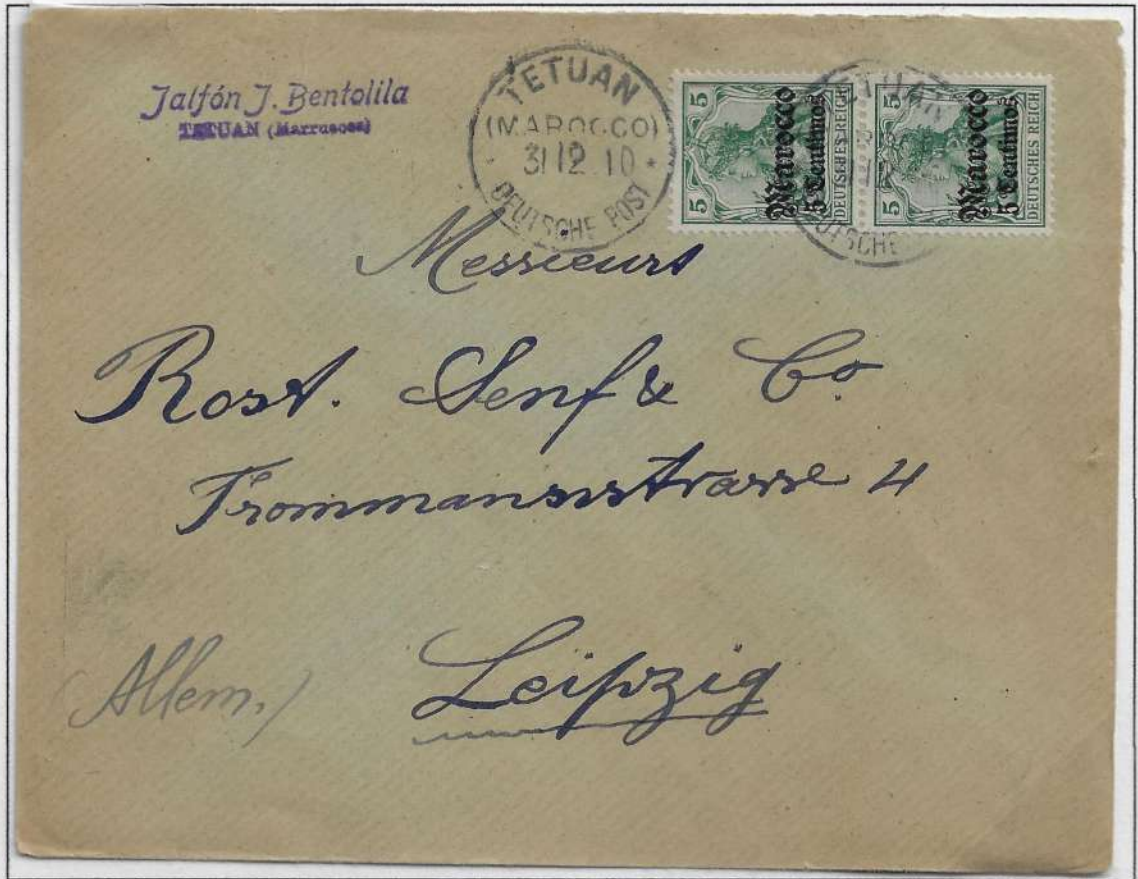 Jalfón J. Bentolila
TETUAN (Marruecos)
TETUAN
(MAROCCO)
31 12 10
DEUTSCHE POST
5
5
DEUTSCHES REICH
Marocco
5 Centimos
5
5
DEUTSCHES REICH
Marocco
5 Centimos
Messieurs
Rost. Senf & Co
Frommannstrasse 4
(Allem.)
Leipzig